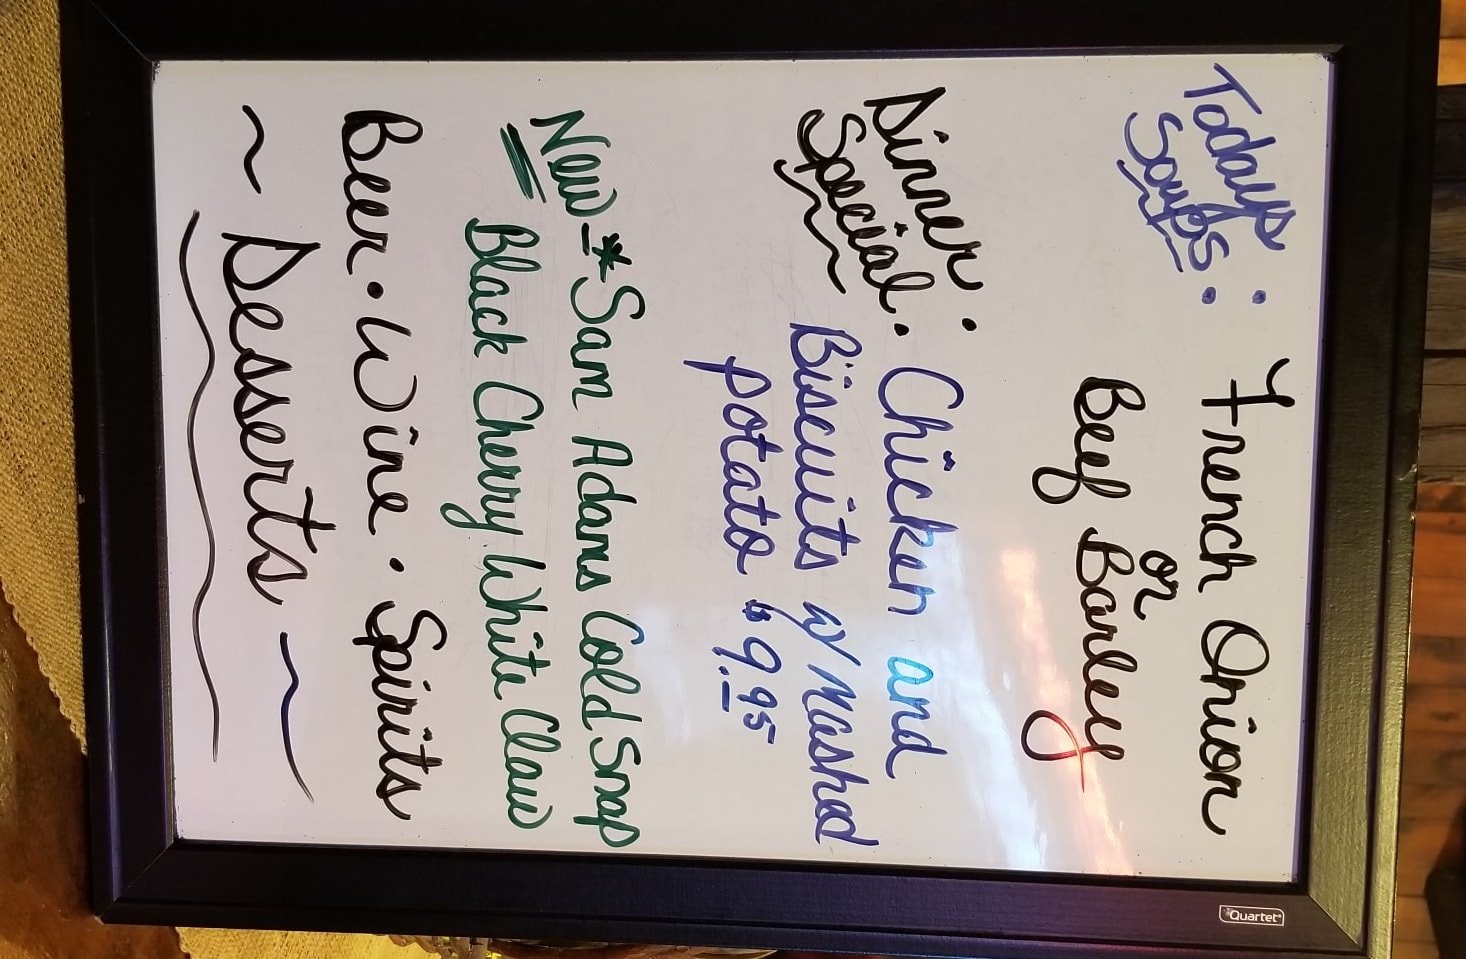 Todays Soups: French Onion
or
Beef Barley
Dinner Special: Chicken and
Biscuits w/ Mashed
potato $9.95
New * Sam Adams Cold Snap
Black Cherry White Claw
Beer • Wine • Spirits
~ Desserts ~
Quartet